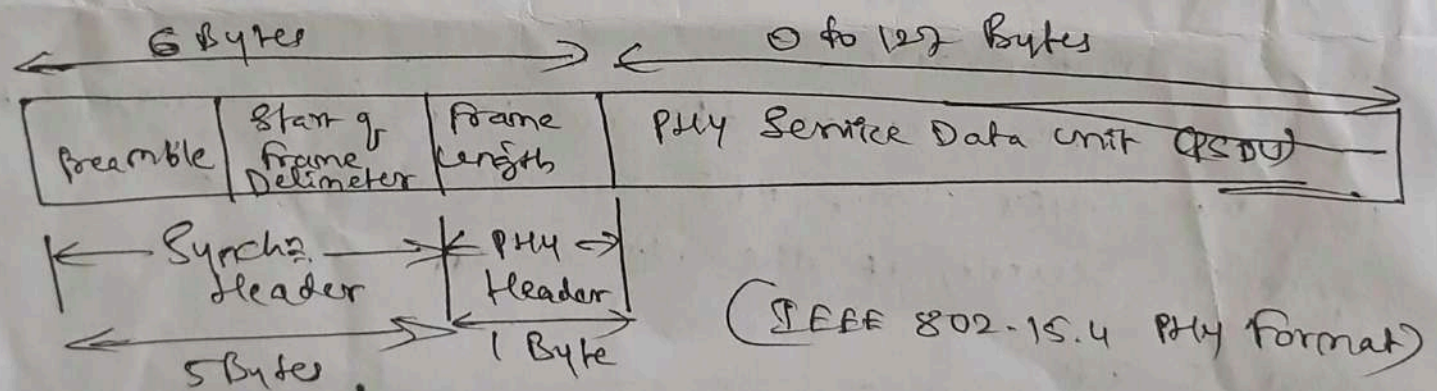 6 Bytes 0 to 127 Bytes
Preamble
Start of
Frame
Delimeter
Frame
Length
PHY Service Data Unit (PSDU)
Synchz.
Header
PHY
Header
5 Bytes
1 Byte
(IEEE 802.15.4 PHY Format)